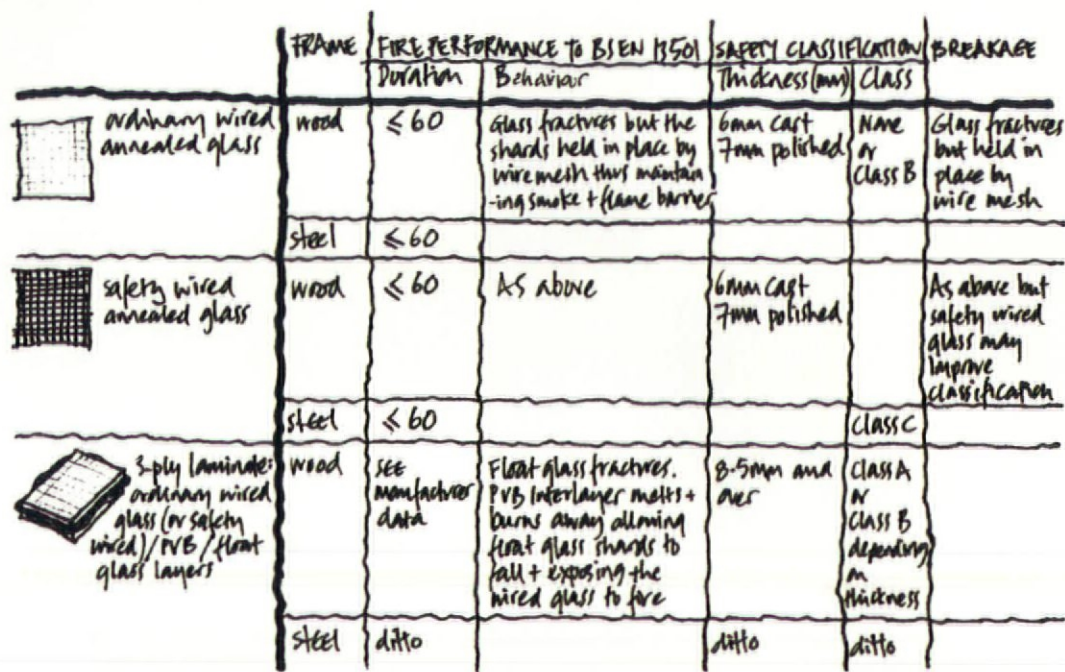 FRAME FIRE PERFORMANCE TO BSEN 13501 SAFETY CLASSIFICATION BREAKAGE
Duration Behaviour Thickness (mm) Class
ordinary wired
annealed glass
wood
⩽ 60
Glass fractures but the
shards held in place by
wire mesh thus maintain
-ing smoke + flame barrier
6mm cast
7mm polished
None
or
Class B
Glass fractures
but held in
place by
wire mesh
steel
⩽ 60
safety wired
annealed glass
wood
⩽ 60
As above
6mm cast
7mm polished
As above but
safety wired
glass may
improve
classification
steel
⩽ 60
Class C
3-ply laminate:
ordinary wired
glass (or safety
wired) / PVB / float
glass layers
wood
SEE
manufacturer
data
Float glass fractures.
PVB Interlayer melts +
burns away allowing
float glass shards to
fall + exposing the
wired glass to fire
8·5mm and
over
Class A
or
Class B
depending
on
thickness
steel
ditto
ditto
ditto